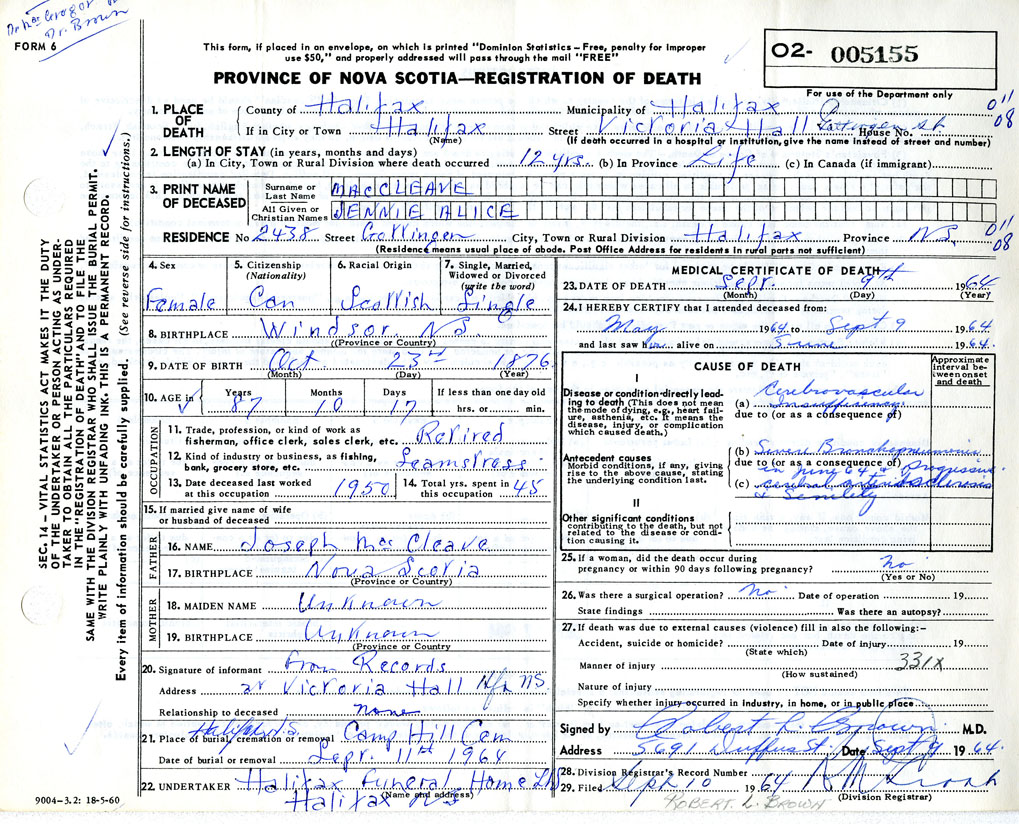 Dr. Brown
FORM 6
This form, if placed in an envelope, on which is printed "Dominion Statistics – Free, penalty for improper
use $50," and properly addressed will pass through the mail "FREE"
PROVINCE OF NOVA SCOTIA—REGISTRATION OF DEATH
O2- 005155
For use of the Department only
1. PLACE OF DEATH
County of Halifax Municipality of Halifax 011
If in City or Town Halifax Street Victoria Hall Gottingen St House No. 08
(Name) (If death occurred in a hospital or institution, give the name instead of street and number)
2. LENGTH OF STAY (in years, months and days)
(a) In City, Town or Rural Division where death occurred 12 yrs. (b) In Province Life (c) In Canada (if immigrant)
3. PRINT NAME OF DECEASED
Surname or Last Name MACCLEAVE
All Given or Christian Names JENNIE ALICE
RESIDENCE No 2438 Street Gottingen City, Town or Rural Division Halifax Province N.S. 011 08
(Residence means usual place of abode. Post Office Address for residents in rural parts not sufficient)
4. Sex Female
5. Citizenship (Nationality) Can
6. Racial Origin Scottish
7. Single, Married, Widowed or Divorced (write the word) Single
8. BIRTHPLACE Windsor NS
(Province or Country)
9. DATE OF BIRTH Oct 23rd 1876
(Month) (Day) (Year)
10. AGE in Years 87 Months 10 Days 17 If less than one day old hrs. or min.
OCCUPATION
11. Trade, profession, or kind of work as fisherman, office clerk, sales clerk, etc. Retired
12. Kind of industry or business, as fishing, bank, grocery store, etc. Seamstress
13. Date deceased last worked at this occupation 1950 14. Total yrs. spent in this occupation 45
15. If married give name of wife or husband of deceased
FATHER
16. NAME Joseph MacCleave
17. BIRTHPLACE Nova Scotia
(Province or Country)
MOTHER
18. MAIDEN NAME Unknown
19. BIRTHPLACE Unknown
(Province or Country
20. Signature of informant From Records
Address at Victoria Hall Hfx NS
Relationship to deceased none
21. Place of burial, cremation or removal Halifax N.S. Camp Hill Cem
Date of burial or removal Sept. 11th 1964
22. UNDERTAKER Halifax Funeral Home Ltd
(Name and address)
Halifax NS
9004-3.2: 18-5-60
MEDICAL CERTIFICATE OF DEATH
23. DATE OF DEATH Sept. 9th 1964
(Month) (Day) (Year)
24. I HEREBY CERTIFY that I attended deceased from:
May 1964 to Sept 9 1964.
and last saw her alive on Same 1964.
CAUSE OF DEATH
Approximate interval between onset and death
I
Disease or condition directly leading to death (This does not mean the mode of dying, e.g., heart failure, asthenia, etc. It means the disease, injury, or complication which caused death.)
(a) Cerebrovascular insufficiency
due to (or as a consequence of)
Antecedent causes
Morbid conditions, if any, giving rise to the above cause, stating the underlying condition last.
(b) Severe Bronchopneumonia
due to (or as a consequence of)
in June 64, + Progressive
(c) cerebral arteriosclerosis
+ Senility
II
Other significant conditions
contributing to the death, but not related to the disease or condition causing it.
25. If a woman, did the death occur during pregnancy or within 90 days following pregnancy? no
(Yes or No)
26. Was there a surgical operation? No. Date of operation 19
State findings Was there an autopsy?
27. If death was due to external causes (violence) fill in also the following:–
Accident, suicide or homicide? Date of injury 19
(State which)
Manner of injury 331X
(How sustained)
Nature of injury
Specify whether injury occurred in Industry, in home, or in public place
Signed by Robert L. Brown M.D.
Address 5691 Duffus St. Date Sept 9 1964.
28. Division Registrar's Record Number
29. Filed Sept 10 1964
(Division Registrar)
ROBERT. L. BROWN
SEC. 14 – VITAL STATISTICS ACT MAKES IT THE DUTY
OF THE UNDERTAKER OR PERSON ACTING AS UNDER-
TAKER TO OBTAIN ALL THE PARTICULARS REQUIRED
IN THE "REGISTRATION OF DEATH" AND TO FILE THE
SAME WITH THE DIVISION REGISTRAR WHO SHALL ISSUE THE BURIAL PERMIT.
WRITE PLAINLY WITH UNFADING INK. THIS IS A PERMANENT RECORD.
Every item of information should be carefully supplied. (See reverse side for instructions.)